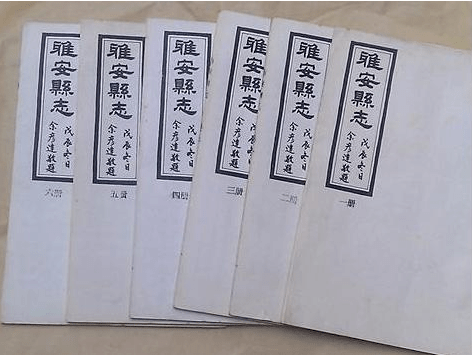 雅安縣志
戊辰冬日
余彥達敬題
一册
雅安縣志
戊辰冬日
余彥達敬題
二册
雅安縣志
戊辰冬日
余彥達敬題
三册
雅安縣志
戊辰冬日
余彥達敬題
四册
雅安縣志
戊辰冬日
余彥達敬題
五册
雅安縣志
戊辰冬日
余彥達敬題
六册